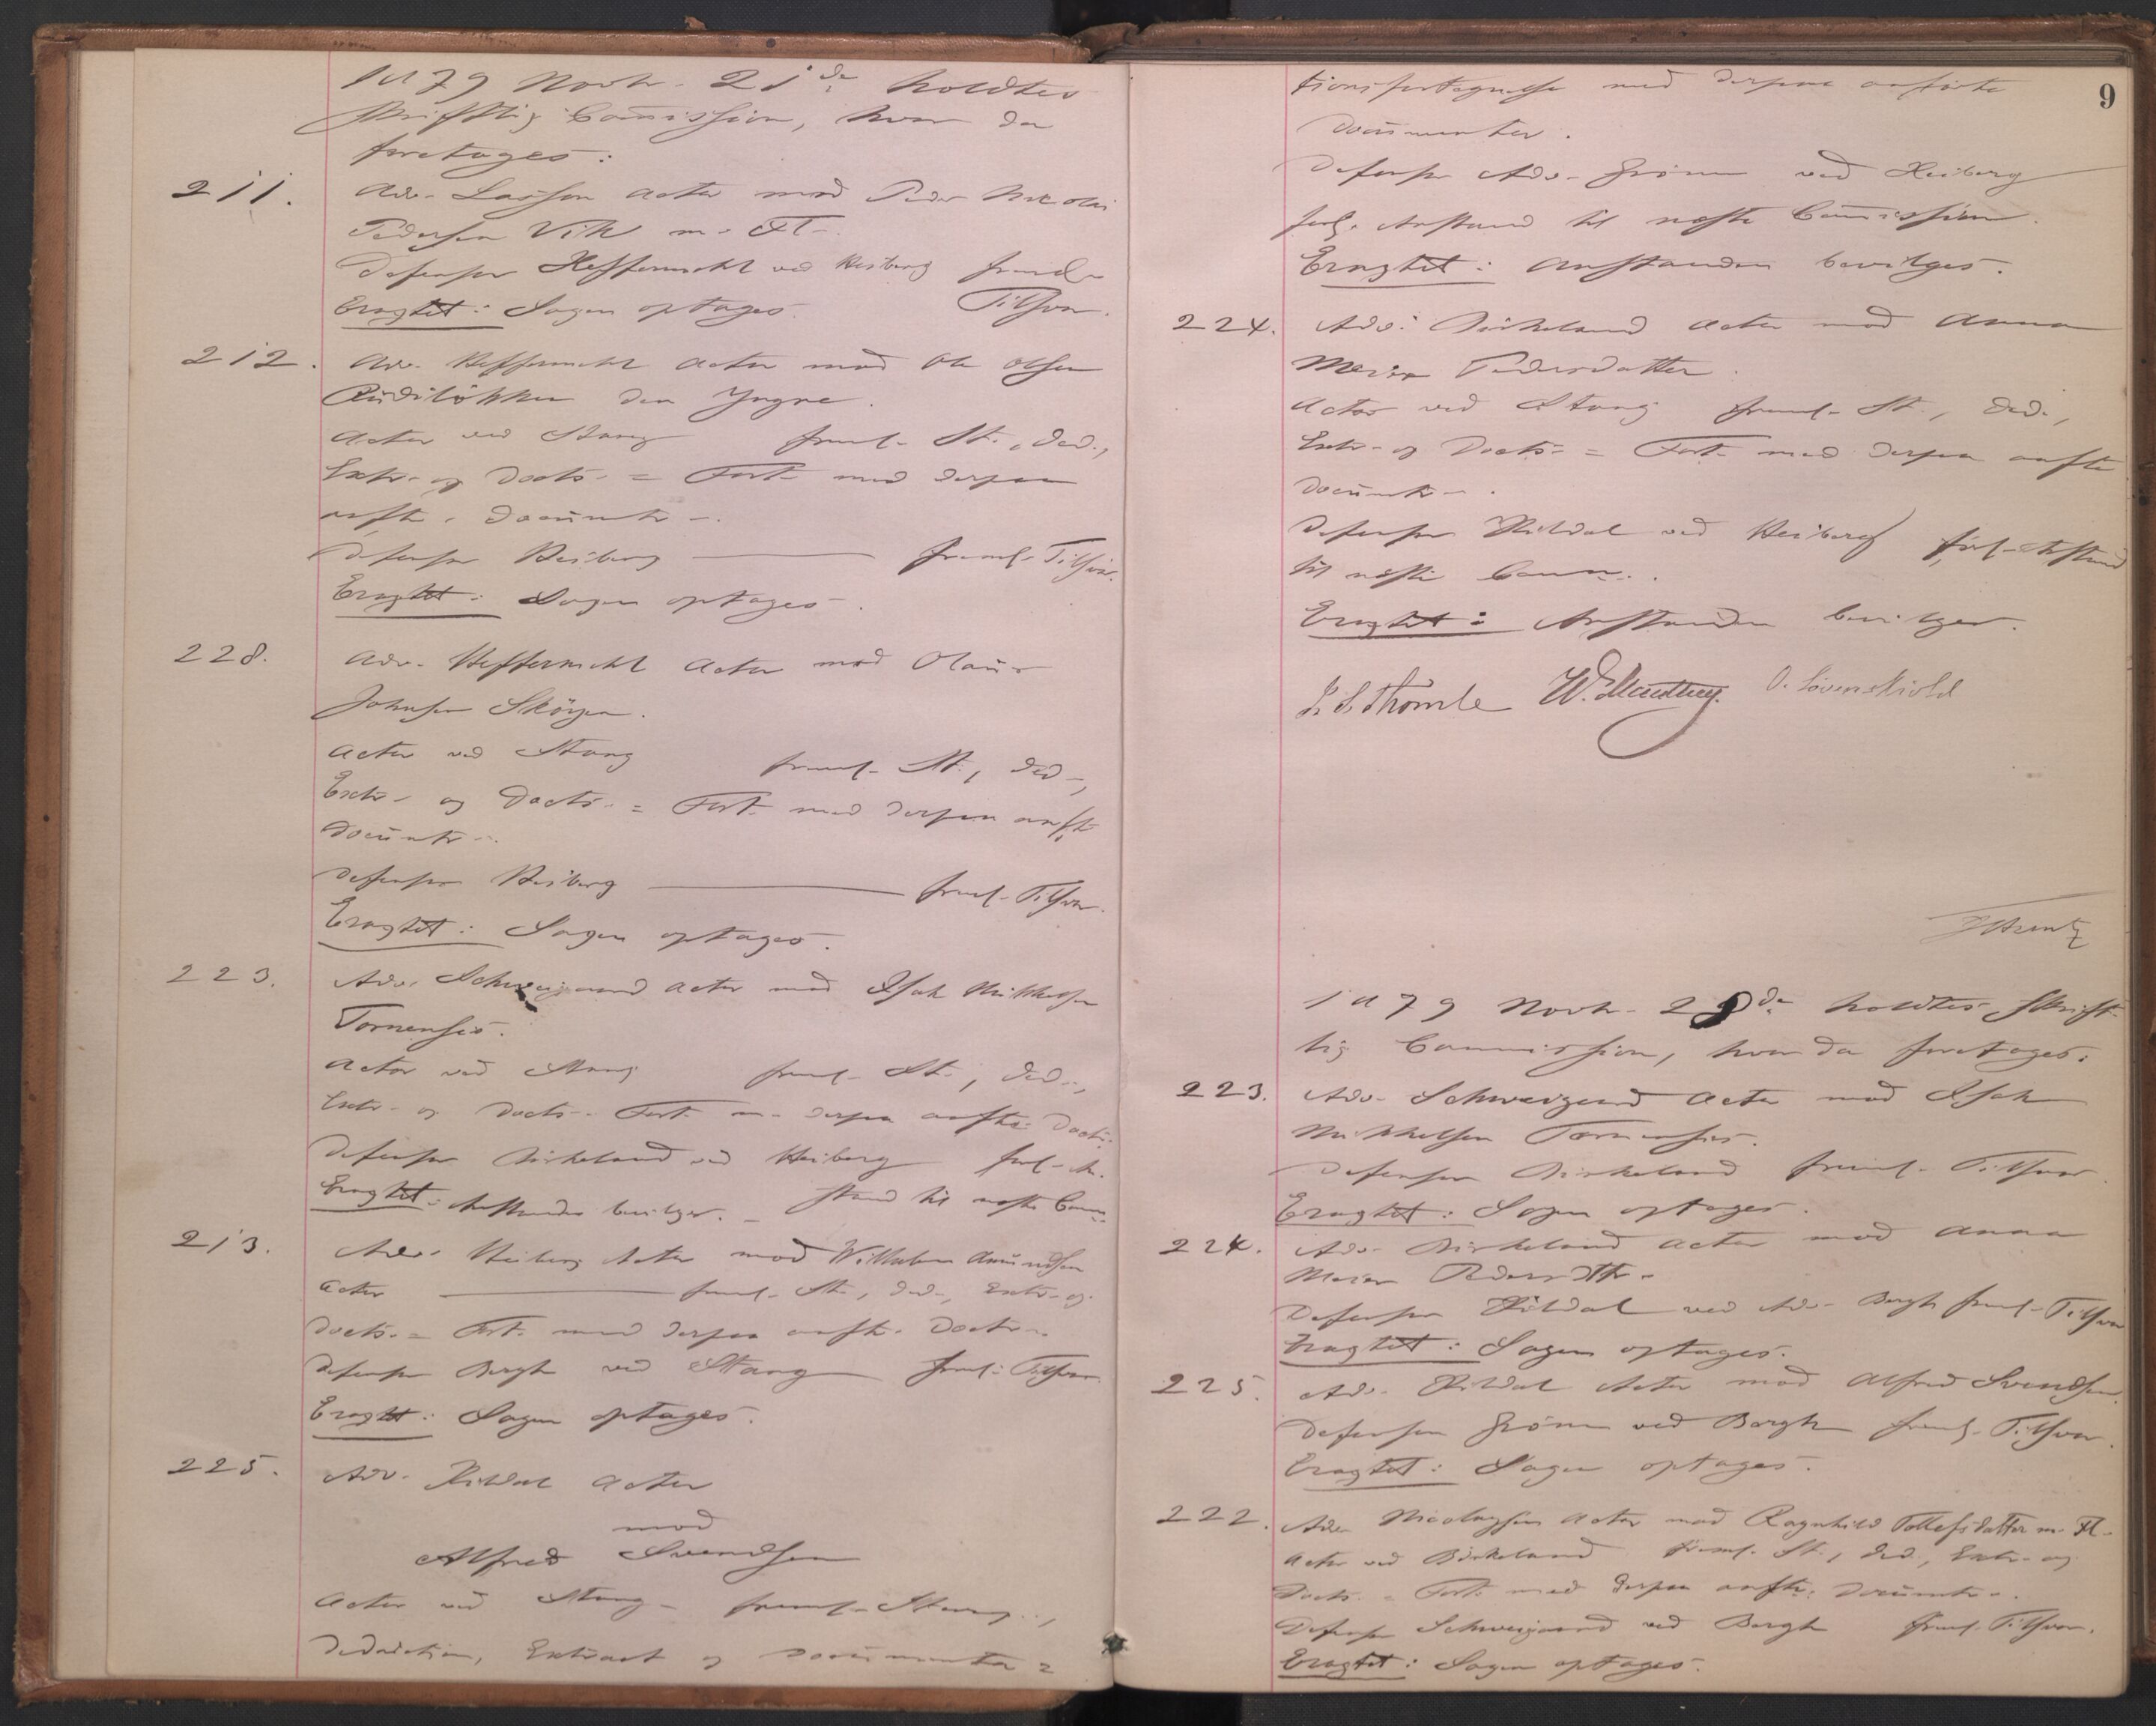 1879 Novbr. 21de holdtes
skriftlig Commission, hvor da
foretoges:
211. Adv. Lasson Actor mod Peder Nicolai
Pedersen Vik m. Fl.
Defensor Heffermehl ved Heiberg freml.
Eragtet: Sagen optages. Tilsvar.
212. Adv. Heffermehl Actor mod Ole Olsen
den Yngre.
Actor ved Stang freml. St., Ded.,
Extr. og Docts. = Fort. med derpaa
anfte. Documtr.
Defensor Heiberg freml. Tilsvar.
Eragtet: Sagen optages.
228. Adv. Heffermehl Actor mod Olaus
Johnsen
Actor ved Stang freml. St., Ded.,
Extr. og Docts. = Fort. med derpaa anft.
Documtr.
Defensor Heiberg freml. Tilsvar.
Eragtet: Sagen optages.
223. Adv. Schweigaard Actor mod Isak Mikkelsen
Tornensis.
Actor ved Stang freml. St., Ded.,
Extr. og Docts. Fort. m. derpaa anfte. Doctr.
Defensor Birkeland ved Heiberg forl. An-
Eragtet: Anstanden bevilges. stand til næste Comm.
213. Adv. Heiberg Actor mod Wilhelm Amundsen
Actor freml. St., Ded., Extr. og
Docts. = Fort. med derpaa anft. Doctr.
Defensor Bergh ved Stang freml. Tilsvar.
Eragtet: Sagen optages.
225. Adv. Kildal Actor
mod
Alfred Svendsen
Actor ved Stang freml. Stevng.,
Deduction, Extract og Documenta=
9
tionsfortegnelse med derpaa anførte
Documenter.
Defensor Adv. Grönn ved Heiberg
forl. Anstand til næste Commission.
Eragtet: Anstanden bevilges.
224. Adv. Birkeland Actor mod Anna
Maria Pedersdatter.
Actor ved Stang freml. St., Ded.,
Extr. og Docts. = Fort. med derpaa anfte
Documtr.
Defensor Kildal ved Heiberg forl. Anstand
til næste Comm.
Eragtet: Anstanden bevilges.
Thomle O. Løvenskiold
1879 Novbr. 28de holdtes skrift-
lig Commission, hvor da foretoges:
223. Adv. Schweigaard Actor mod Isak
Mikkelsen Tornensis.
Defensor Birkeland freml. Tilsvar.
Eragtet: Sagen optages.
224. Adv. Birkeland Actor mod Anna
Maria Pedersdtr.
Defensor Kildal ved Adv. Bergh freml. Tilsvar
Eragtet: Sagen optages.
225. Adv. Kildal Actor mod Alfred Svendsen.
Defensor Grönn ved Bergh freml. Tilsvar.
Eragtet: Sagen optages.
222. Adv. Nicolaysen Actor mod Ragnhild Tollefsdatter m. Fl.
Actor ved Birkeland freml. St., Ded., Extr. og
Docts. = Fort. med derpaa anfte. Documtr.
Defensor Schweigaard ved Bergh freml. Tilsvar.
Eragtet: Sagen optages.